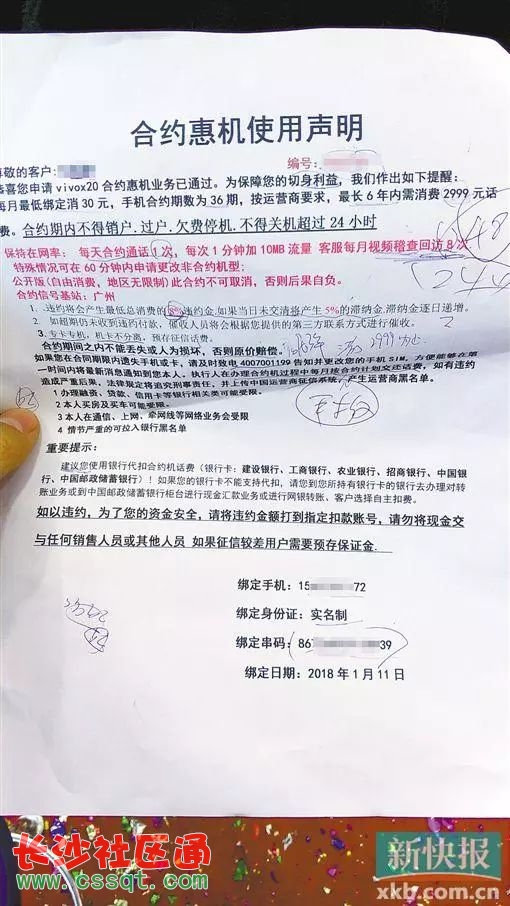 合约惠机使用声明
尊敬的客户:
编号:
恭喜您申请 vivox20 合约惠机业务已通过。为保障您的切身利益，我们作出如下提醒:
每月最低绑定消 30 元，手机合约期数为 36 期，按运营商要求，最长 6 年内需消费 2999 元话
费。合约期内不得销户.过户.欠费停机.不得关机超过 24 小时
保持在网率: 每天合约通话 1 次，每次 1 分钟加 10MB 流量 客服每月视频稽查回访 8 次
特殊情况可在 60 分钟内申请更改非合约机型:
公开版(自由消费，地区无限制)此合约不可取消，否则后果自负。
合约信号基站: 广州
1. 违约将会产生最低总消费的 8%违约金.如果当日未交清将产生 5%的滞纳金.滞纳金逐日递增。
2. 如超期仍未收到违约付款，催收人员将会根据您提供的第三方联系方式进行催收。
3. 专卡专机，机卡不分离，预存征信话费。
合约期间之内不能丢失或人为损坏，否则原价赔偿。
如果您在合同期限内遗失手机或卡，请及时致电 4007001199 告知并更改您的手机 SIM，方便能够在第
一时间内将最新消息通知到您本人，执行人在办理合约机过程中每月按合约计划交还话费，如有违约
造成严重后果，法律规定将追究刑事责任，并上传中国运营商征信系统，产生运营商黑名单。
1 办理融资、贷款、信用卡等银行相关类可能受限。
2 本人买房及买车可能受限。
3 本人在通信、上网、牵网线等网络业务会受限
4 情节严重的可拉入银行黑名单
重要提示:
建议您使用银行代扣合约机话费（银行卡: 建设银行、工商银行、农业银行、招商银行、中国银
行、中国邮政储蓄银行）！如果您的银行卡不能支持代扣，请您到您所持有银行卡的银行去办理对转
账业务或到中国邮政储蓄银行柜台进行现金汇款业务或进行网银转账、客户选择自主扣费。
如以违约，为了您的资金安全，请将违约金额打到指定扣款账号，请勿将现金交
与任何销售人员或其他人员 如果征信较差用户需要预存保证金.
绑定手机: 15 72
绑定身份证: 实名制
绑定串码: 86 39
绑定日期: 2018 年 1 月 11 日
长沙社区通
www.cssqt.com
新快报
xkb.com.cn